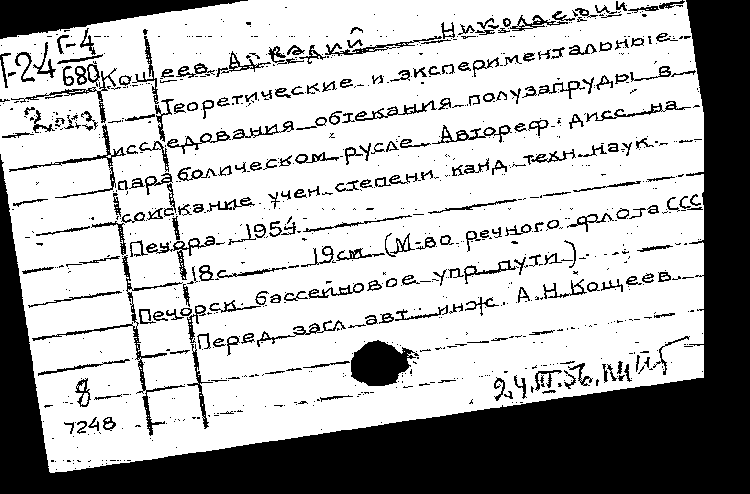 Г-24 Г-4
680
Кощеев, Аркадий Николаевич
2 экз
Теоретические и экспериментальные
исследования обтекания полузапруды в
параболическом русле. Автореф. дисс. на
соискание учен. степени канд. техн. наук.
Печора, 1954.
18 с. 19 см. (М-во речного флота СССР
Печорск. бассейновое упр. пути)
Перед загл. авт.: инж. А.Н. Кощеев.
8
7248
24.III.56.